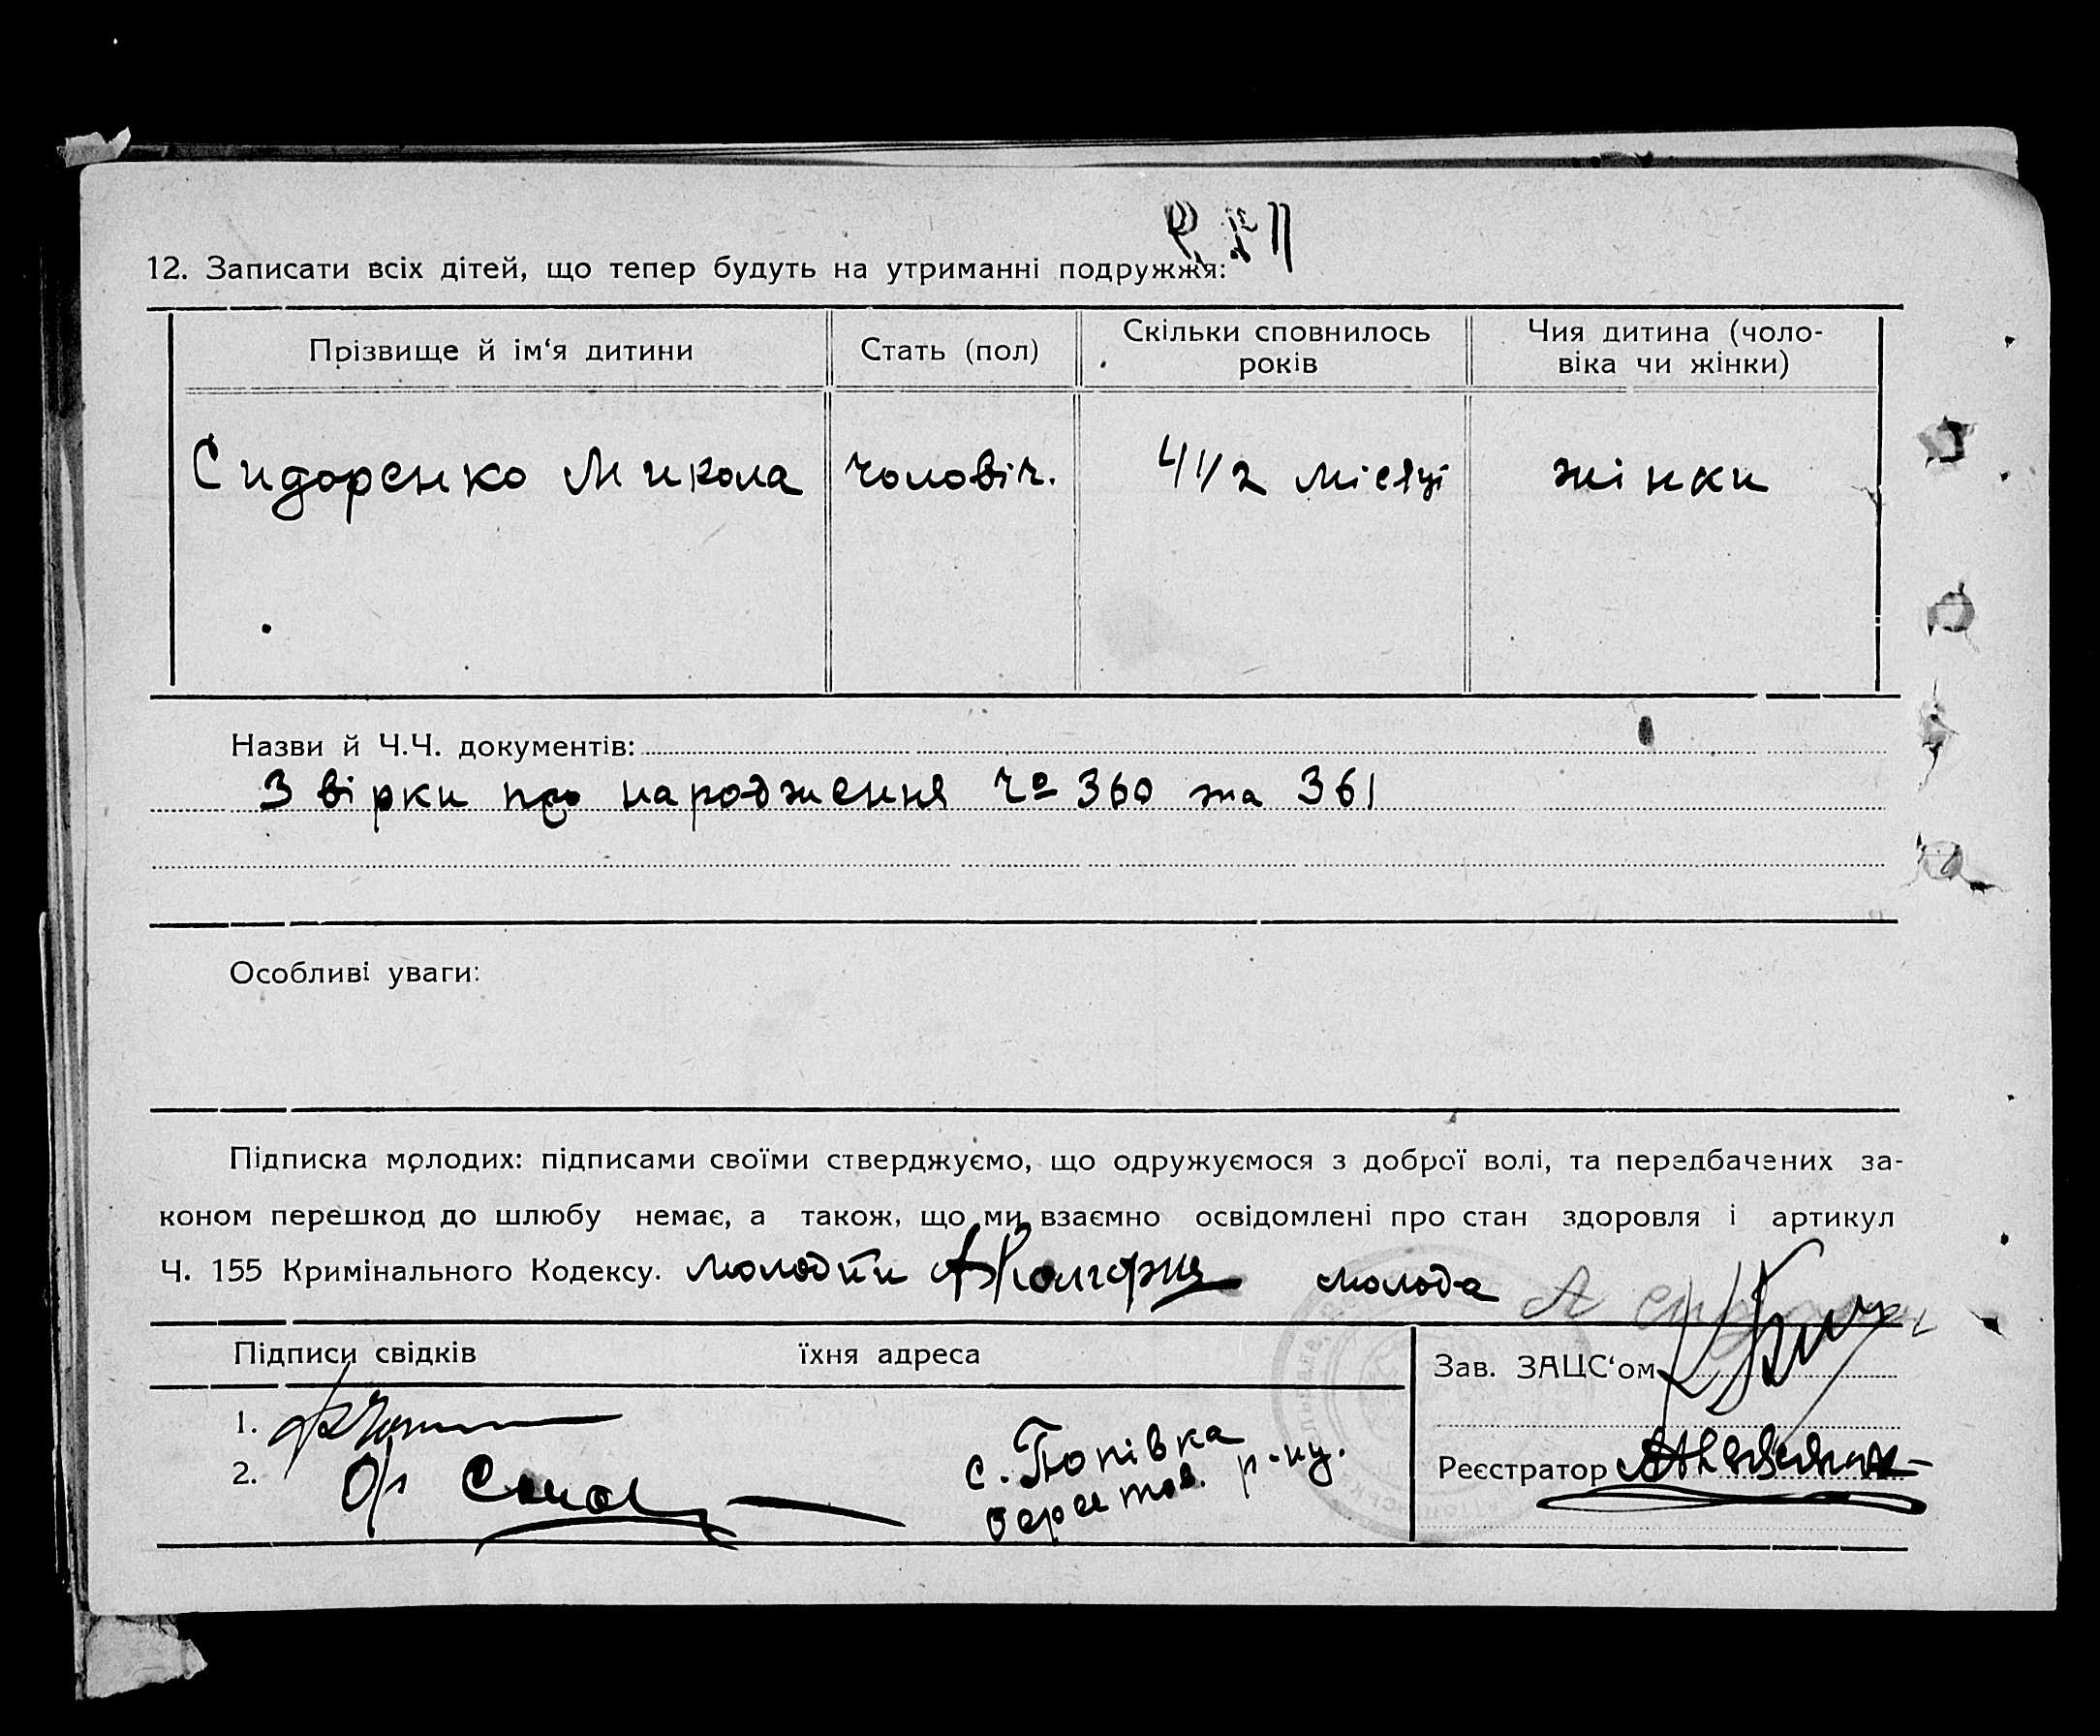 12. Записати всіх дітей, що тепер будуть на утриманні подружжя:
Прізвище й ім‘я дитини
Стать (пол)
Скільки сповнилось
років
Чия дитина (чоло-
віка чи жінки)
Сидоренко Микола
чоловіч.
4 1/2 місяці
жінки
Назви й Ч.Ч. документів:
Звірки про народження Ч० 360 та 361
Особливі уваги:
Підписка молодих: підписами своїми стверджуємо, що одружуємося з доброї волі, та передбачених за-
коном перешкод до шлюбу немає, а також, що ми взаємно освідомлені про стан здоровля і артикул
Ч. 155 Кримінального Кодексу. молодий молода
Підписи свідків
їхня адреса
Зав. ЗАЦС‘ом
1.
с. Попівка
2.
р-ну.
Реєстратор